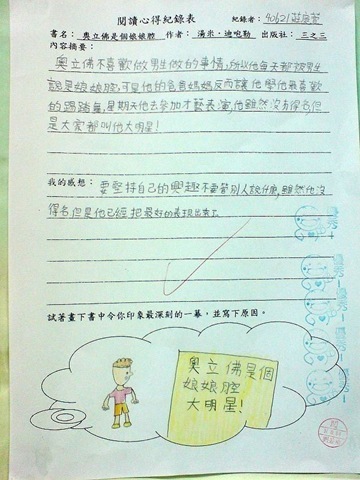 閱讀心得紀錄表 紀錄者：40621
書名：奧立佛是個娘娘腔 作者：湯米．迪咆勒 出版社：三之三
內容摘要：
奧立佛不喜歡做男生做的事情,所以他每天都被男生
說是娘娘腔,可是他的爸爸媽媽反而讓他學他最喜歡
的踢踏舞,星期天他去參加才藝表演,他雖然沒有得名但
是大家都叫他大明星!
我的感想：要堅持自己的興趣不要管別人說什麼,雖然他沒
得名但是他已經把最好的表現出來了
試著畫下書中令你印象最深刻的一幕，並寫下原因。
奧立佛是個
娘娘腔
大明星!